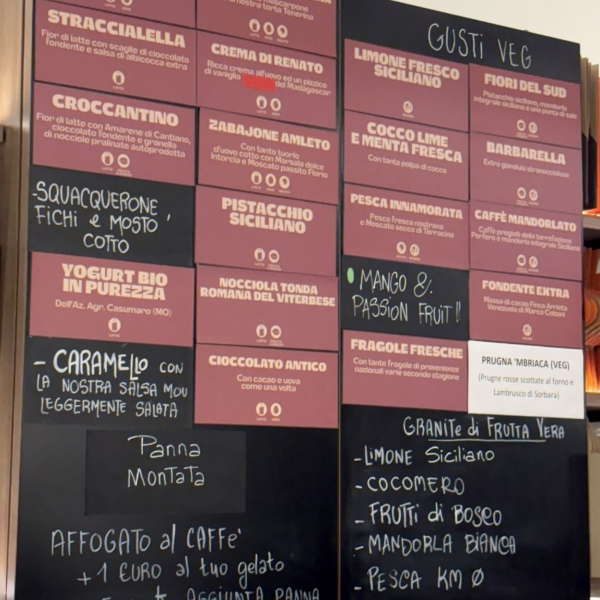 mascarpone
nostra torta Tenerina
STRACCIALELLA
Fior di latte con scaglie di cioccolato
fondente e salsa di albicocca extra
LATTE
CREMA DI RENATO
Ricca crema all'uovo ed un pizzico
di vaniglia del Madagascar
CROCCANTINO
Fior di latte con Amarene di Cantiano,
cioccolato fondente e granella
di nocciole pralinate autoprodotta
ZABAJONE AMLETO
Con tanto tuorlo
d'uovo cotto con Marsala dolce
Intorcia e Moscato passito Florio
-SQUACQUERONE,
FICHI e MOSTO
COTTO
PISTACCHIO
SICILIANO
YOGURT BIO
IN PUREZZA
Dell'Az. Agr. Casumaro (MO)
LATTE
NOCCIOLA TONDA
ROMANA DEL VITERBESE
- CARAMELLO CON
LA NOSTRA SALSA MOU
LEGGERMENTE SALATA
CIOCCOLATO ANTICO
Con cacao e uova
come una volta
Panna
Montata
AFFOGATO al CAFFE'
+ 1 EURO al tuo gelato
AGGIUNTA PANNA
GUSTI VEG
LIMONE FRESCO
SICILIANO
FIORI DEL SUD
Pistacchio siciliano, mandorla
integrale siciliana e una punta di sale
COCCO LIME
E MENTA FRESCA
Con tanta polpa di cocco
BARBARELLA
Extra gianduia stranocciolosa
PESCA INNAMORATA
Pesca fresca nostrana
e Moscato secco di Terracina
CAFFÈ MANDORLATO
Caffè pregiati della torrefazione
Perfero e mandorla integrale Siciliana
MANGO &
PASSION FRUIT!!
FONDENTE EXTRA
Massa di cacao Finca Arrieta
Venezuela di Marco Colzani
FRAGOLE FRESCHE
Con tante fragole di provenienza
nazionali varie secondo stagione
PRUGNA 'MBRIACA (VEG)
(Prugne rosse scottate al forno e
Lambrusco di Sorbara)
GRANITE di FRUTTA VERA
-LIMONE Siciliano
-COCOMERO
-FRUTTI di BOSCO
-MANDORLA BIANCA
-PESCA KM Ø